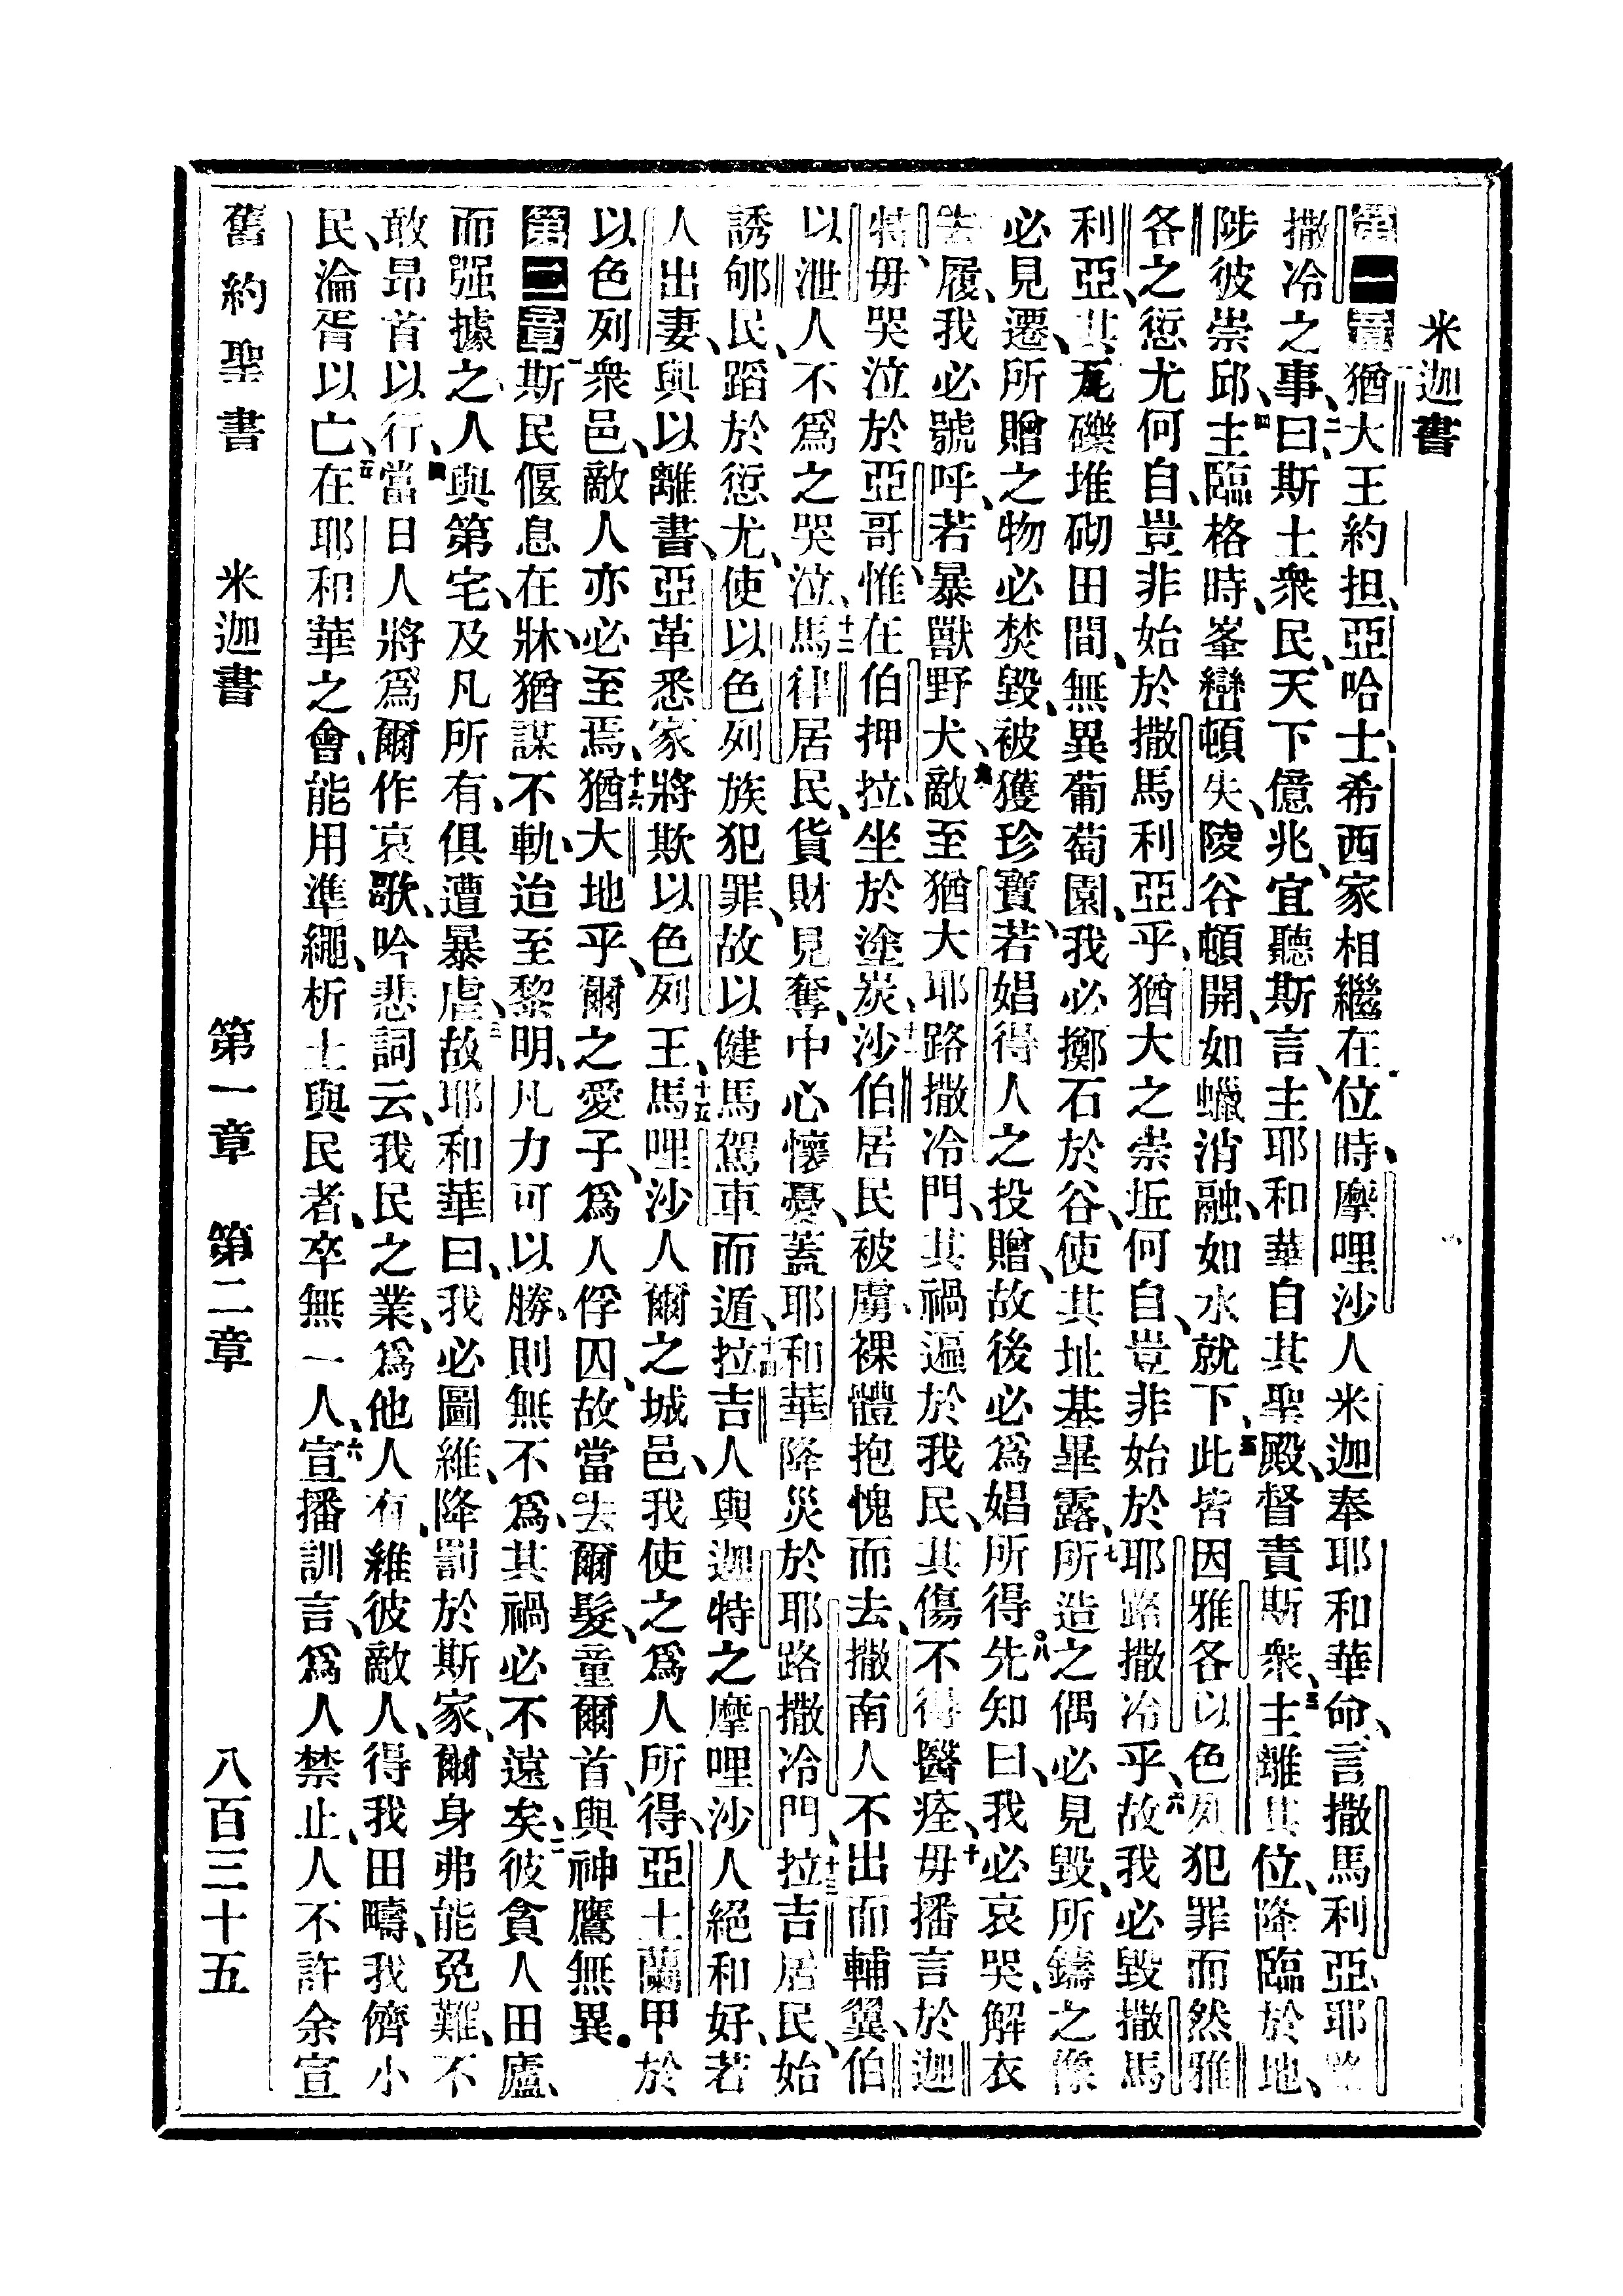 米迦書
第一章猶大王約担、亞哈士、希西家相繼在位時、摩哩沙人米迦奉耶和華命、言撒馬利亞、耶路
撒冷之事、二曰、斯土衆民、天下億兆、宜聽斯言、主耶和華自其聖殿、督責斯衆、三主離其位、降臨於地、
陟彼崇邱、四主臨格時、峯巒頓失、陵谷頓開、如蠟消融、如水就下、五此皆因雅各以色列犯罪而然、雅
各之愆尤何自、豈非始於撒馬利亞乎、猶大之崇坵何自、豈非始於耶路撒冷乎、六故我必毀撒馬
利亞、其瓦礫堆砌田間、無異葡萄園、我必擲石於谷、使其址基畢露、七所造之偶必見毀、所鑄之像
必見遷、所贈之物必焚毀、被獲珍寶、若娼得人之投贈、故後必爲娼所得、八先知曰、我必哀哭、解衣
去履、我必號呼、若暴獸野犬、九敵至猶大耶路撒冷門、其禍逼於我民、其傷不得醫痊、十毋播言於迦
特、毋哭泣於亞哥、惟在伯押拉、坐於塗炭、十一沙伯居民被虜、裸體抱愧而去、撒南人不出而輔翼、伯
以泄人不爲之哭泣、十二馬律居民、貨財見奪、中心懷憂、蓋耶和華降災於耶路撒冷門、十三拉吉居民、始
誘郇民、蹈於愆尤、使以色列族犯罪、故以健馬駕車而遁、十四拉吉人與迦特之摩哩沙人絕和好、若
人出妻、與以離書、亞革悉家將欺以色列王、十五馬哩沙人爾之城邑、我使之爲人所得、亞土蘭甲於
以色列衆邑、敵人亦必至焉、十六猶大地乎、爾之愛子、爲人俘囚、故當去爾髮、童爾首、與神鷹無異。
第二章斯民偃息在牀、猶謀不軌、迨至黎明、凡力可以勝、則無不爲、其禍必不遠矣、二彼貪人田廬、
而强據之、人與第宅、及凡所有、俱遭暴虐、三故耶和華曰、我必圖維、降罰於斯家、爾身弗能免難、不
敢昂首以行、四當日人將爲爾作哀歌、吟悲詞云、我民之業、爲他人有、維彼敵人、得我田疇、我儕小
民、淪胥以亡、五在耶和華之會、能用準繩、析土與民者、卒無一人、六宣播訓言、爲人禁止、人不許余宣
舊約聖書 米迦書 第一章 第二章 八百三十五